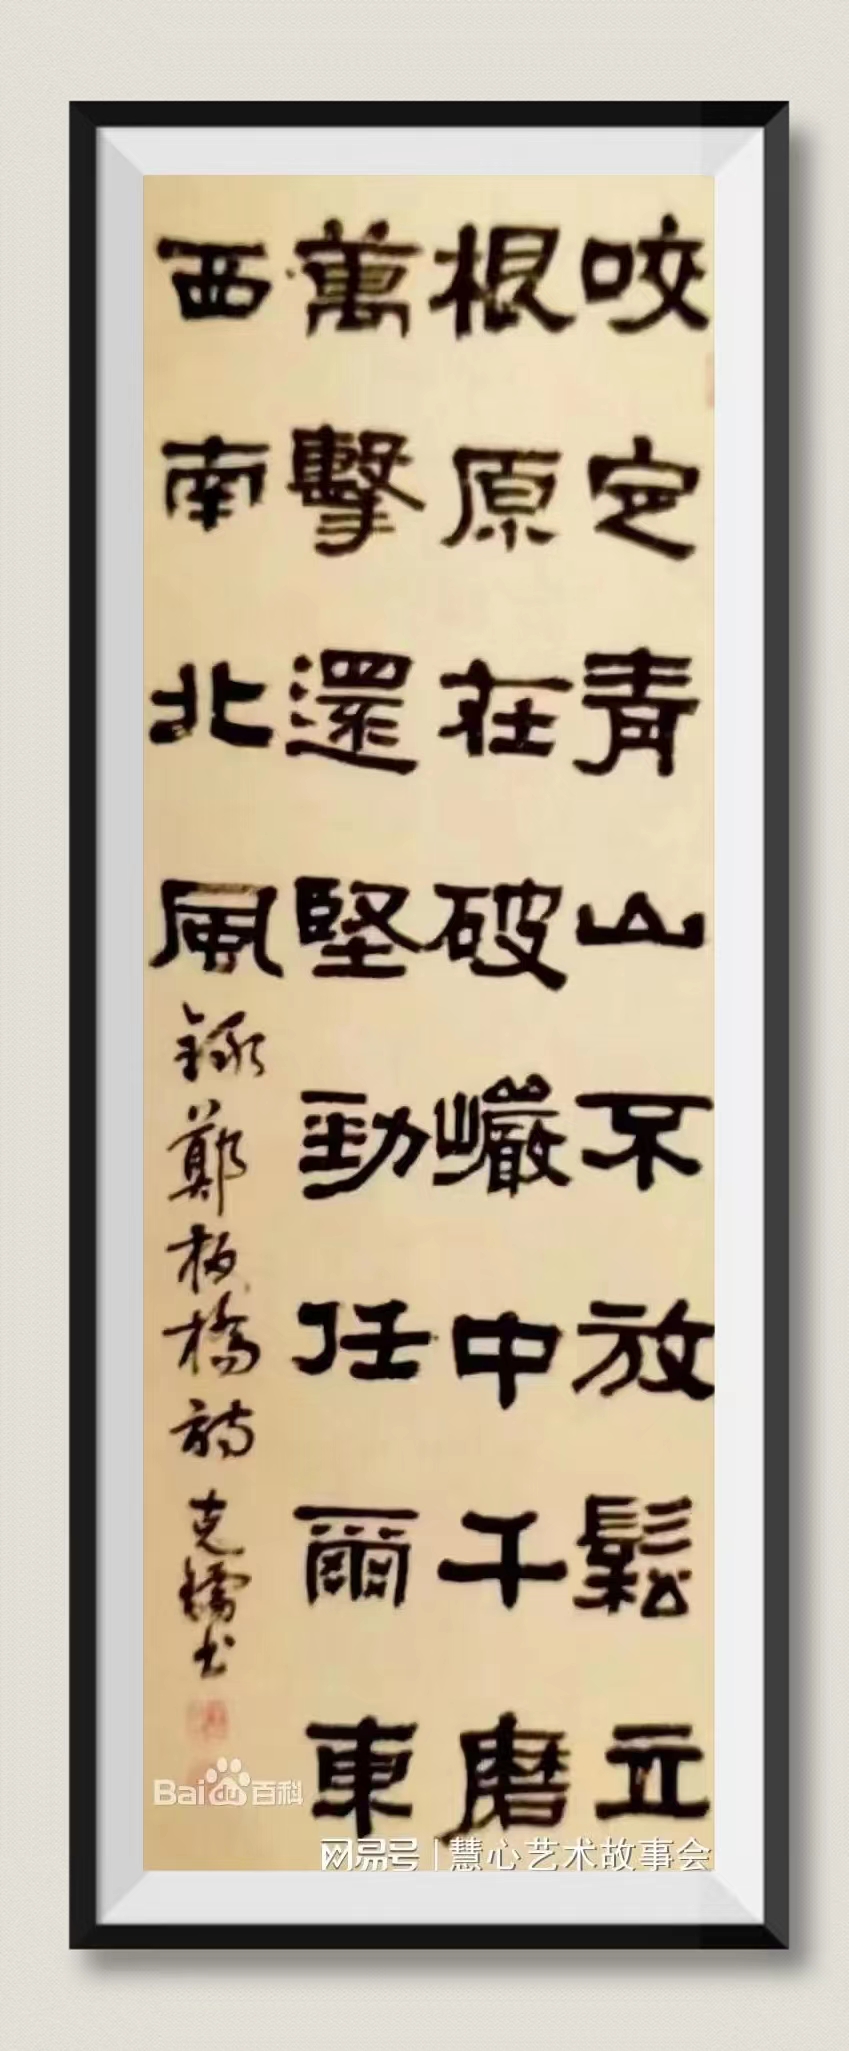 咬定青山不放鬆立
根原在破巖中千磨
萬擊還堅勁任爾東
西南北風
錄鄭板橋詩
克書
Baidu百科
网易号 | 慧心艺术故事会